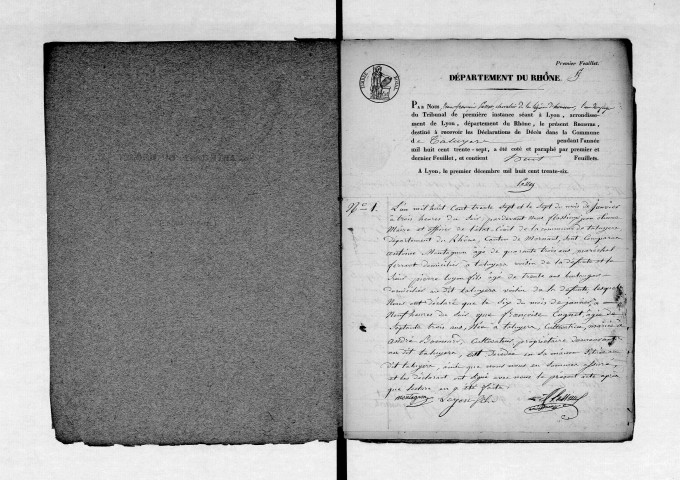 Premier Feuillet.
DÉPARTEMENT DU RHÔNE.
PAR NOUS, chevalier de la légion d'honneur,
du Tribunal de première instance séant à Lyon, arrondisse-
ment de Lyon, département du Rhône, le présent REGISTRE,
destiné à recevoir les Déclarations de Décès dans la Commune
de Taluyers pendant l'année
mil huit cent trente-sept, a été coté et paraphé par premier et
dernier Feuillet, et contient huit Feuillets.
A Lyon, le premier décembre mil huit cent trente-six.
N° 1.
L'an mil huit cent trente sept et le sept du mois de janvier
à trois heures du soir, pardevant nous
Maire et officier de l'état civil de la commune de taluyers
département du Rhône, Canton de Mornant, sont comparus
antoine Montagnon âgé de quarante trois ans maréchal
ferrant domicilié à taluyers voisin de la défunte et le
Sieur pierre Loyon fils âgé de trente ans boulanger
domicilié au dit taluyers voisin de la défunte, lesquels
Nous ont déclaré que le six du mois de janvier, à
Neuf heures du soir, que françoise âgée de
Septante trois ans, Née à taluyers, Cultivatrice, mariée à
andré Cultivateur propriétaire demeurant
au dit taluyers, est décédée en sa maison au
dit taluyers, ainsi que nous nous en sommes assuré,
et les déclarant ont signé avec nous le présent acte après
que lecture en a été faite.
montagnon Loyon fils